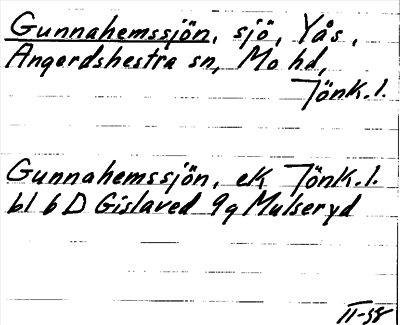 Gunnahemssjön, sjö, Yås,
Angerdshestra sn, Mo hd,
Jönk.l.
Gunnahemssjön, ek Jönk.l.
bl 6 D Gislaved 9g Mulseryd
II-58